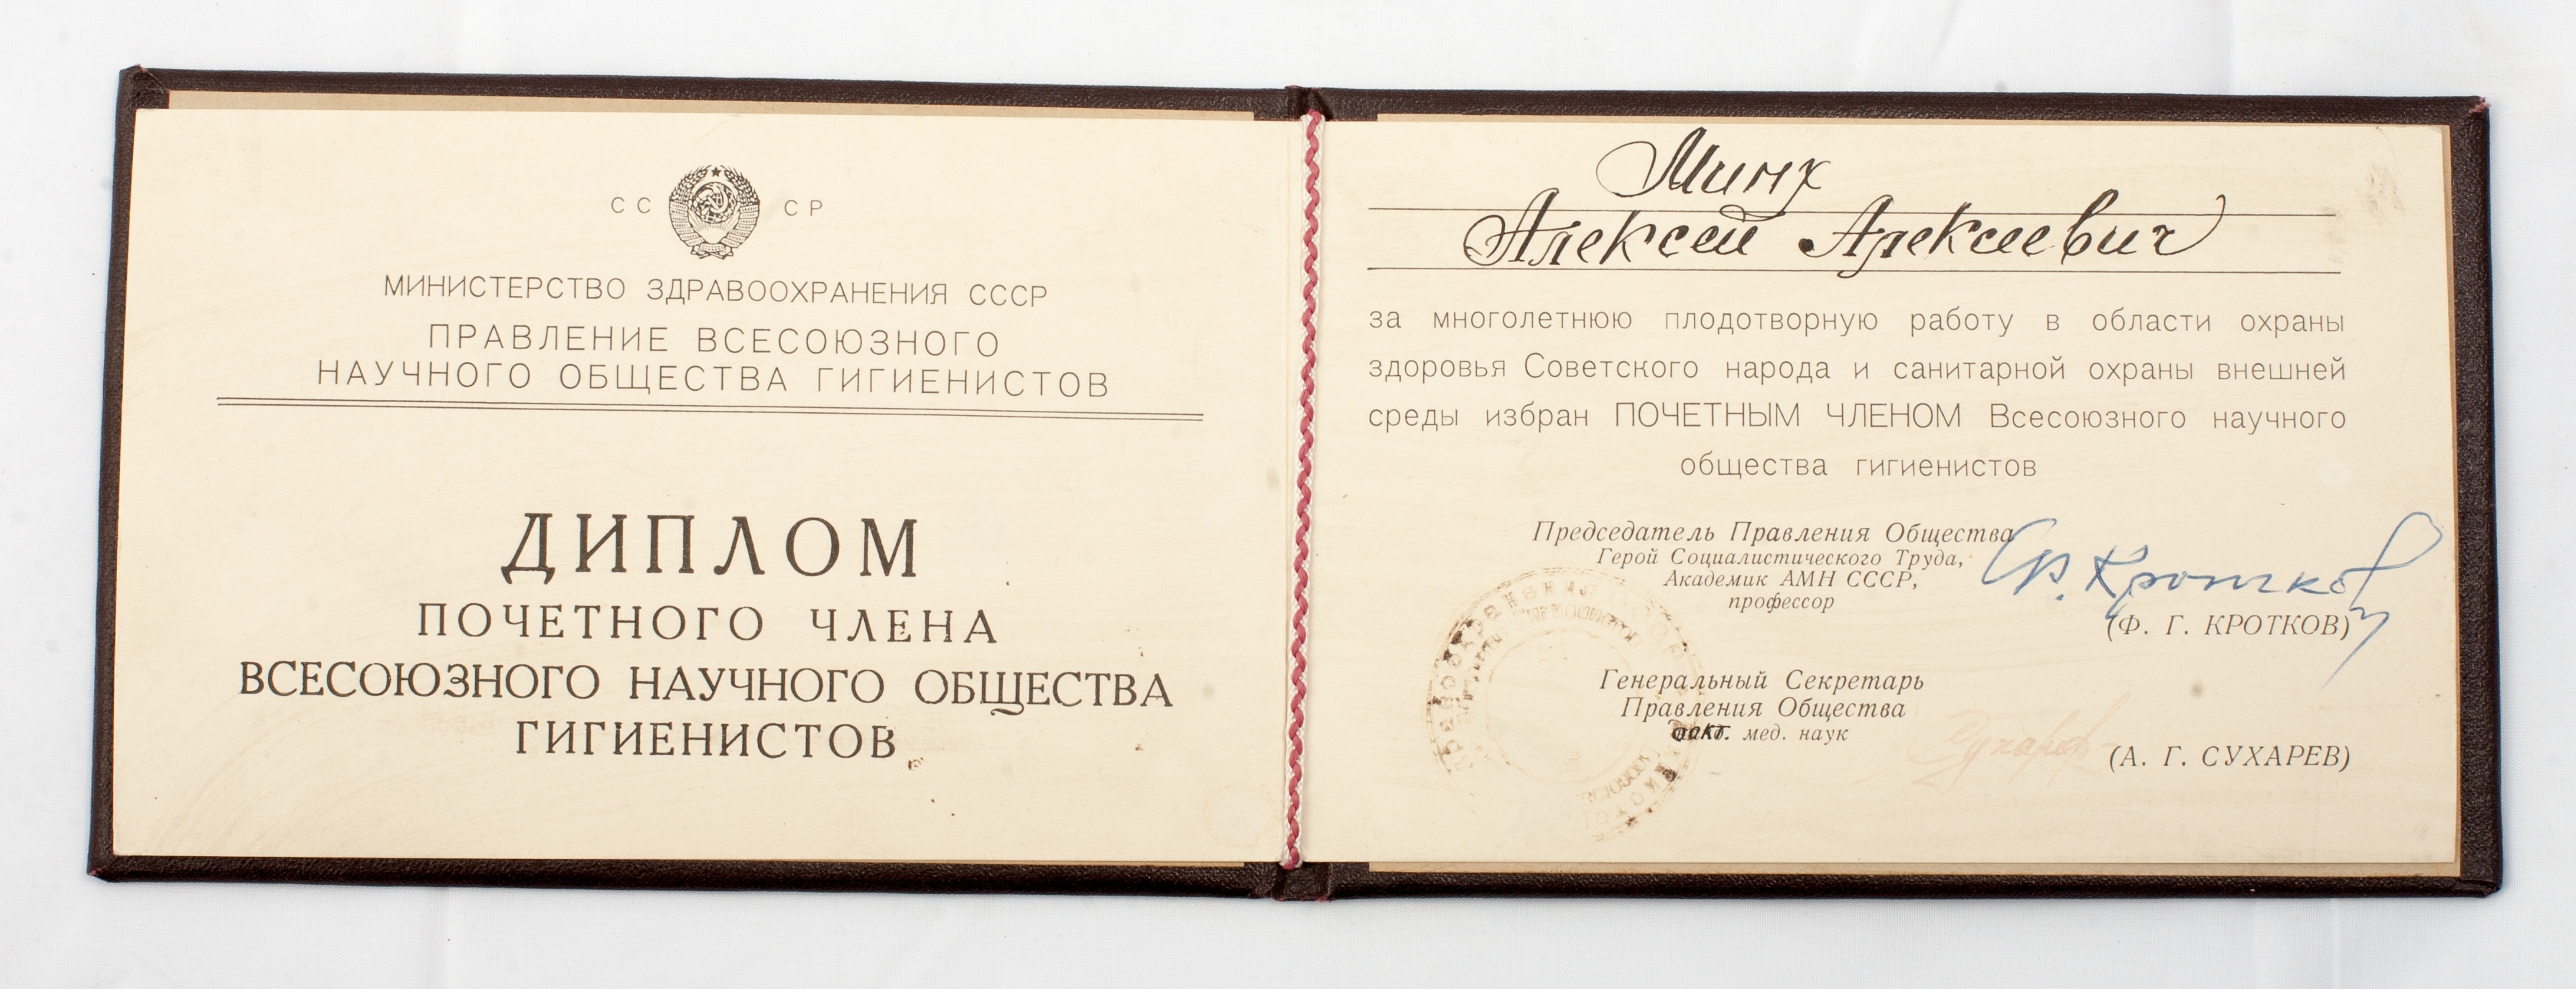 СС СР
МИНИСТЕРСТВО ЗДРАВООХРАНЕНИЯ СССР
ПРАВЛЕНИЕ ВСЕСОЮЗНОГО
НАУЧНОГО ОБЩЕСТВА ГИГИЕНИСТОВ
ДИПЛОМ
ПОЧЕТНОГО ЧЛЕНА
ВСЕСОЮЗНОГО НАУЧНОГО ОБЩЕСТВА
ГИГИЕНИСТОВ
Минх
Алексей Алексеевич
за многолетнюю плодотворную работу в области охраны
здоровья Советского народа и санитарной охраны внешней
среды избран ПОЧЕТНЫМ ЧЛЕНОМ Всесоюзного научного
общества гигиенистов
Председатель Правления Общества
Герой Социалистического Труда,
Академик АМН СССР,
профессор
Ф. Кротков
(Ф. Г. КРОТКОВ)
Генеральный Секретарь
Правления Общества
докт. мед. наук
Сухарев
(А. Г. СУХАРЕВ)